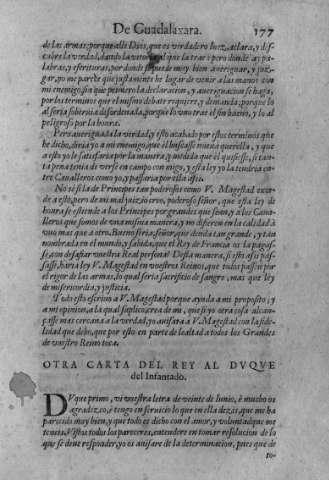 De Guadalaxara. 177
de las armas, porque alli Dios, que es verdadero Juez, aclara, y des-
cubre la verdad, dando la victoria al que la trae: pero donde ay pa-
labras, y escrituras, por donde se puede muy bien averiguar, y juz-
gar, yo me parece que justamente he lugar de venir a las manos con
mi enemigo, sin que primero la declaracion, y averiguacion se haga,
por los terminos que el mismo debate requiere, y demanda; porque lo
al seria sobervia disordenada, porque lo uno trae el fin bueno, y lo al
peligroso para la honra.
Pero averiguada la verdad, y esto acabado por estos terminos que
he dicho, diria yo a mi enemigo, que el buscasse nueva querella, y que
a esto yo le satisfaria por la manera, y medida que el quisiesse, si tan-
ta pena tenia de verse en campo con migo, y esta ley yo la tendria en-
tre Cavalleros como yo, y passaria por ella assi.
No se si la de Principes tan poderosos como V. Magestad exce-
de a esto, pero de mi mal juizio creo, poderoso señor, que esta ley de
honra se estiende a los Principes por grandes que son, y a los Cava-
lleros que somos de una misma manera, y no difieren en la calidad à
uno mas que a otro. Bueno seria, señor, que deuda tan grande, y tan
nombrada en el mundo, y sabida, que el Rey de Francia os la pagas-
se, con desafiar vuestra Real persona? Desta manera, si esto assi pas-
sasse, haria ley V. Magestad en vuestros Reinos, que todos passen por
el rigor de las armas, lo qual seria sacrificio de sangre, mas que ley
de misericordia, y justicia.
Todo esto escrivo a V. Magestad porque ayuda a mi proposito, y
a mi opinion, a la qual suplico, crea de mi, que si yo otra cosa alcan-
çasse mas cercana a la verdad, yo avisara a V. Magestad con la fide-
lidad que debo, que por esto en parte de lealtad a todos los Grandes
de vuestro Reino toca.
OTRA CARTA DEL REY AL DVQVE
del Infantado.
DVque primo, vi vuestra letra de veinte de Iunio, è mucho os
agradezco, è tengo en servicio lo que en ella dezis, que me ha
parecido muy bien, y que todo es dicho con el amor, y voluntad que me
teneis. Vistos todos los pareceres, entendere en tomar resolucion de lo
que se deve responder, yo os avisare de la determinacion, pues que de
to-